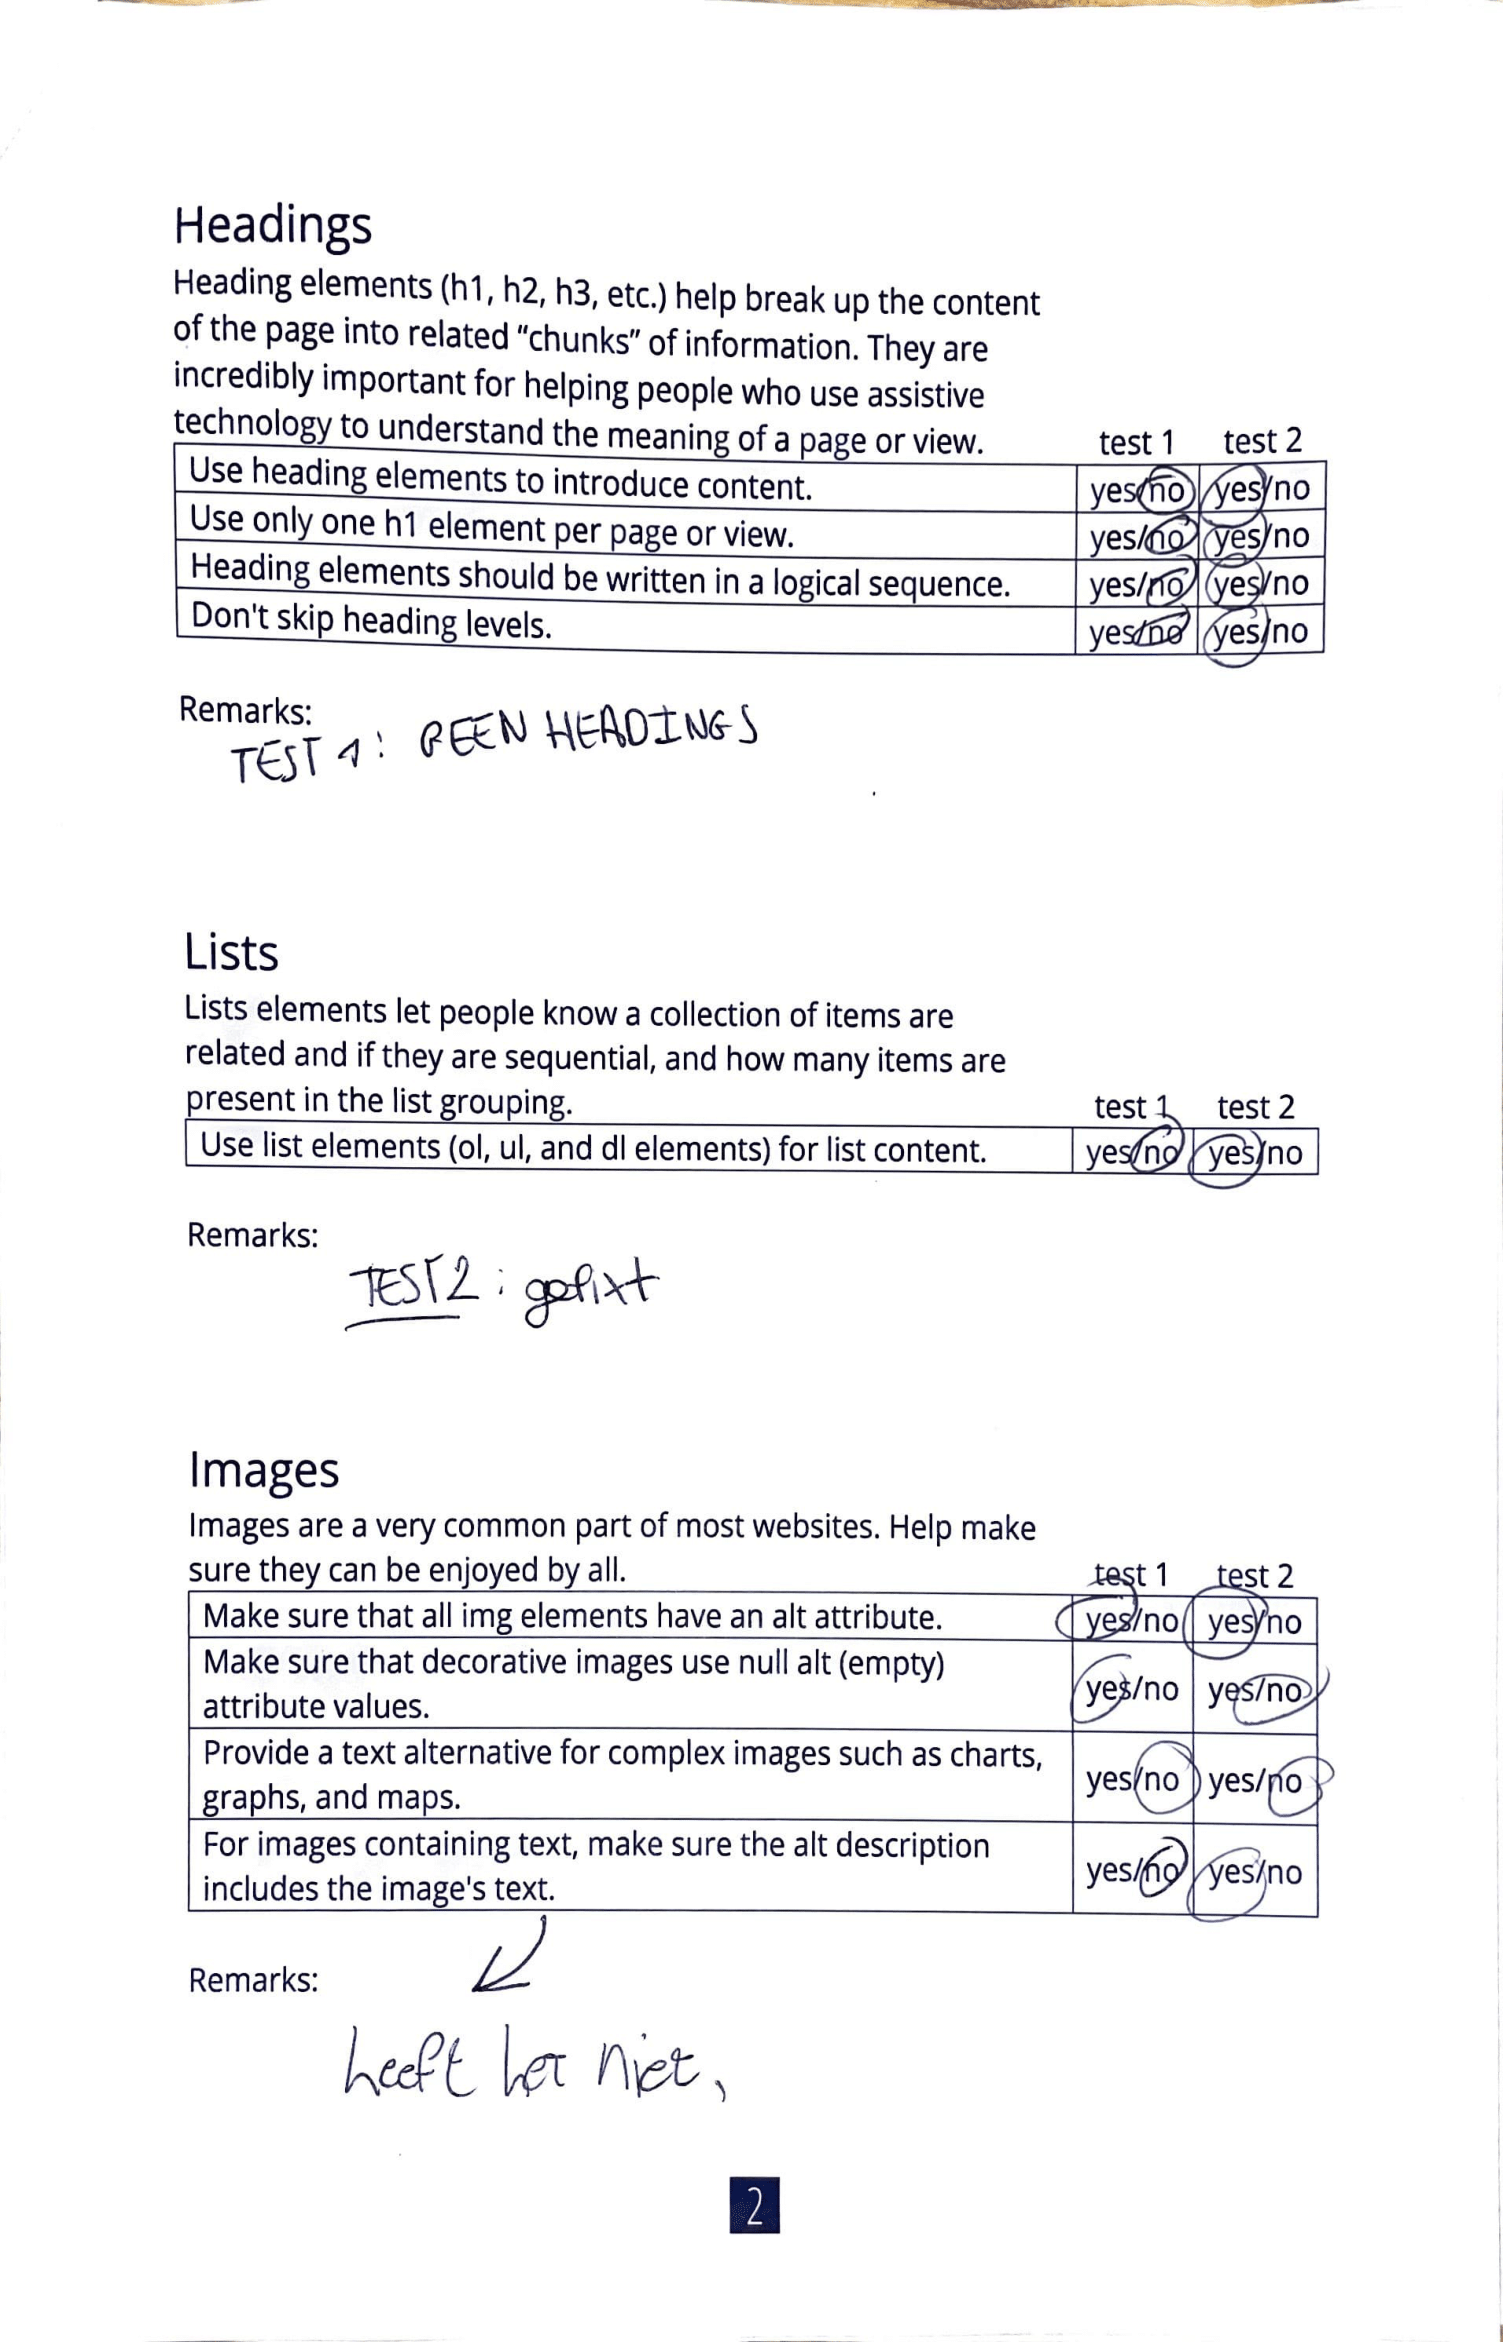 Headings
Heading elements (h1, h2, h3, etc.) help break up the content
of the page into related “chunks” of information. They are
incredibly important for helping people who use assistive
technology to understand the meaning of a page or view. test 1 test 2
Use heading elements to introduce content. yes/no yes/no
Use only one h1 element per page or view. yes/no yes/no
Heading elements should be written in a logical sequence. yes/no yes/no
Don't skip heading levels. yes/no yes/no
Remarks:
TEST 1: GEEN HEADINGS
Lists
Lists elements let people know a collection of items are
related and if they are sequential, and how many items are
present in the list grouping. test 1 test 2
Use list elements (ol, ul, and dl elements) for list content. yes/no yes/no
Remarks:
TEST 2: gefixt
Images
Images are a very common part of most websites. Help make
sure they can be enjoyed by all. test 1 test 2
Make sure that all img elements have an alt attribute. yes/no yes/no
Make sure that decorative images use null alt (empty)
attribute values. yes/no yes/no
Provide a text alternative for complex images such as charts,
graphs, and maps. yes/no yes/no
For images containing text, make sure the alt description
includes the image's text. yes/no yes/no
Remarks:
heeft het niet,
2